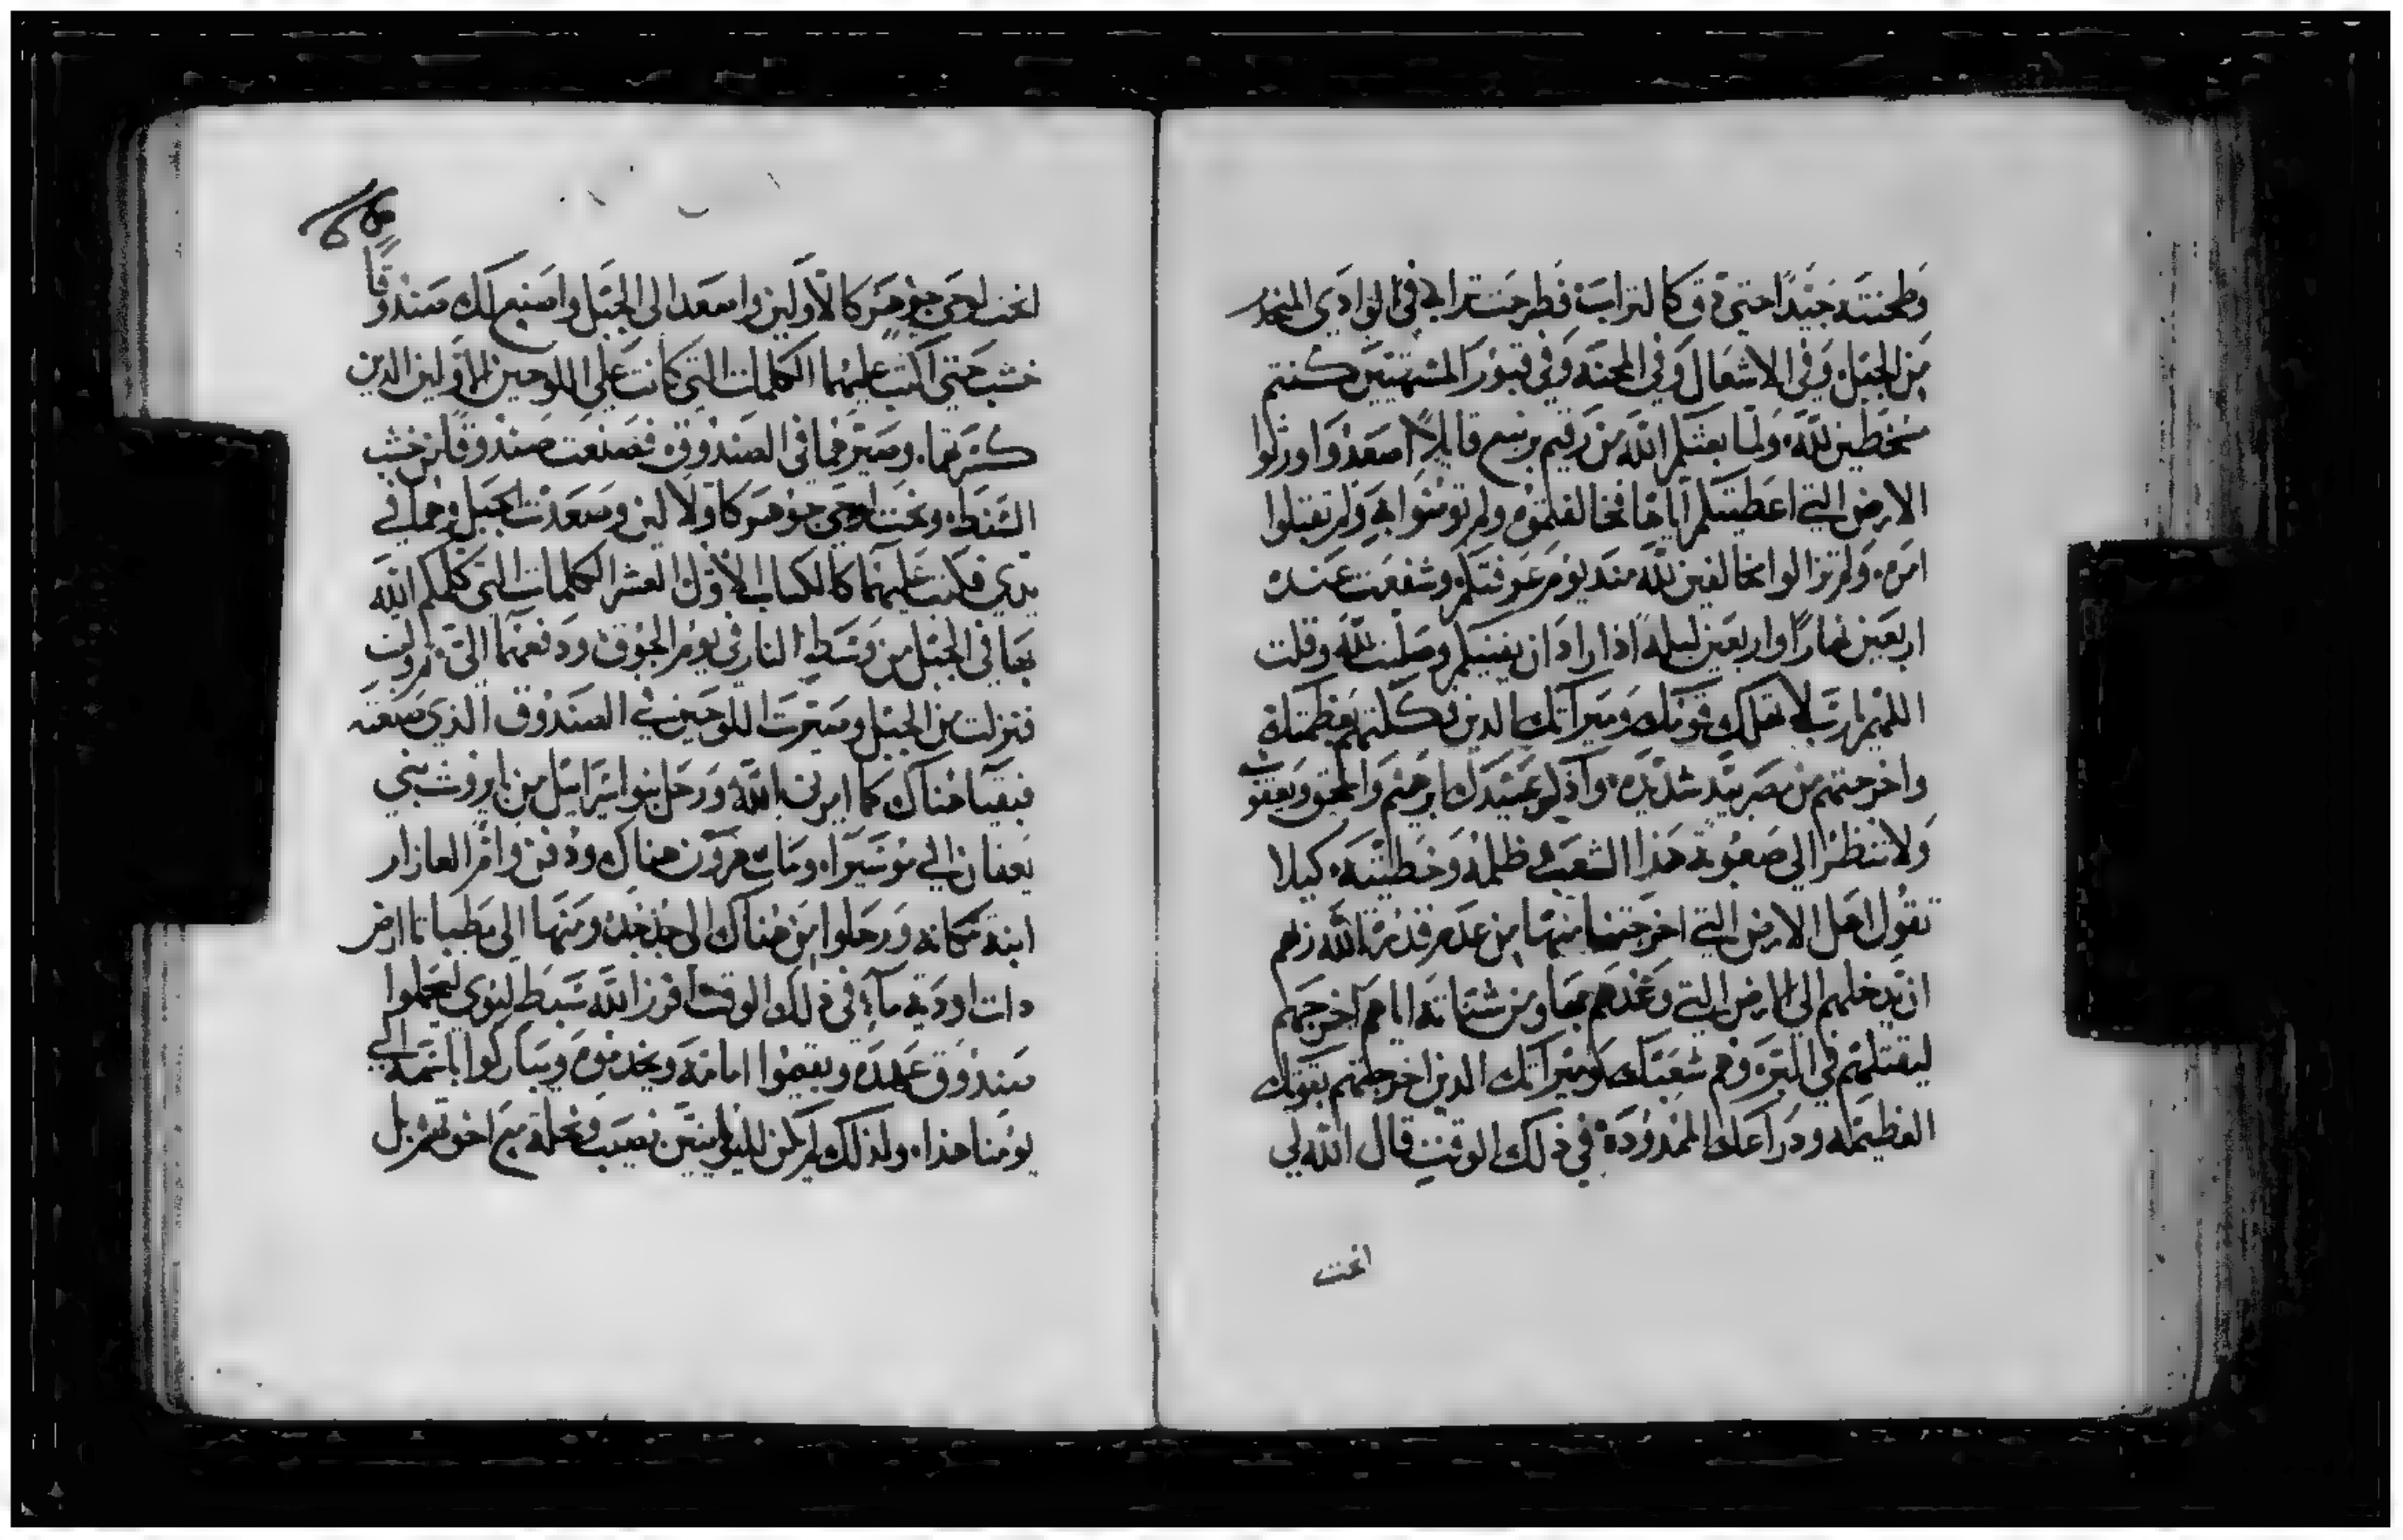 وطحنته جيدًا حتى دق كالتراب فطرحت ترابه في الوادي المنحدر
من الجبل وفي الاشعال وفي المحنه وفي قبور المشتهيين كنتم
مسخطين لله ولما بعثكم الله من رقيم برنيع قايلاً اصعدوا ورثوا
الارض التي اعطيتكم اياها فخالفتموه ولم تومنوا به ولم تقبلوا
امره ولم تزالوا مخالفين لله منذ يوم عرفتكم وشفعت عنده
اربعين نهارًا واربعين ليله اذ اراد ان يفنيكم وصليت لله وقلت
اللهم يارب لا تهلك قومك وميراتك الدين فككتهم بعظمتك
واخرجتهم من مصر بيد شديده واذكر عبيدك ابرهيم واسحق ويعقوب
ولا تنظر الى صعوبة هذا الشعب وظلمه وخطيته كيلا
تقول اهل الارض التي اخرجتنا منها من عدم قدرة الله زعم
ان يدخلهم الى الارض التي وعدهم بها ومن شناته اياهم اخرجهم
ليقتلهم في البر وهم شعبك وميراتك الدين اخرجتهم بقوتك
العظيمه ودراعك الممدودة في ذلك الوقت قال الله لي
انحت
انحت لوحي جوهر كالاولين واصعد الى الجبل واصنع لك صندوقًا
خشب حتي اكتب عليهما الكلمات التي كانت على اللوحين الاولين الدين
كسرتهما وصيرهما في الصندوق فصنعت صندوقًا من خشب
الشنط ونحت لوحي جوهر كالاولين وصعدت الجبل وهما في
يدي فكتب عليهما كالكتاب الاول العشر الكلمات التي كلمكم الله
بها في الجبل من وسط النار في يوم الجوق ودفعهما الي ثم وليت
فنزلت من الجبل وصيرت اللوحين في الصندوق الذي صنعته
فبقيا هناك كما امرني الله ورحل بنوا اسراييل من بايروث بني
يعقان الي موسيرا ومات هرون هناك ودفن وام العازار
ابنه مكانه ورحلوا من هناك الى جدجد ومنها الى يطباتا ارض
دات اودية ماء في ذلك الوقت افرز الله سبط ليوى ليحملوا
صندوق عهده ويقيموا امامه ويخدموه ويباركوا باسمه الي
يومنا هذا ولذلك لم يكن لليوليين نصيب ونحلة مع اخوتهم بل